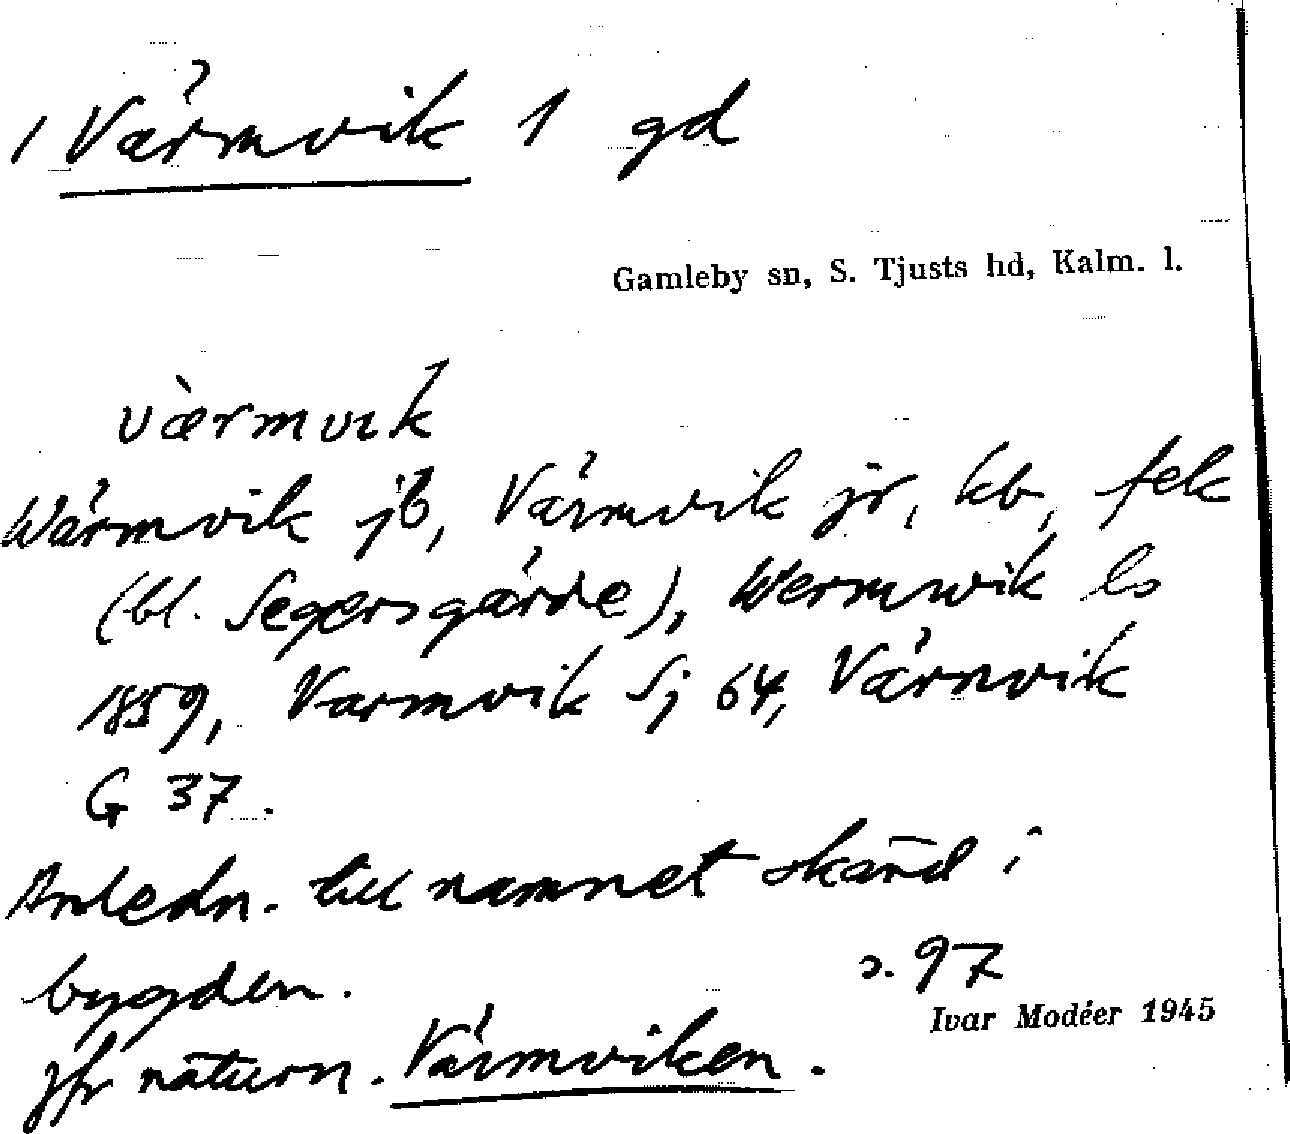 1 Värmvik 1 gd
Gamleby sn, S. Tjusts hd, Kalm. l.
vàrmvik
Wärmvik jb, Värmvik jr, kb, fek
(bl. Segersgärde), Wermwik ls
1859, Varmvik Sj 64, Värnvik
G 37.
Anledn. till namnet okänd i
bygden. s. 97
Ivar Modéer 1945
jfr naturn. Värmviken.